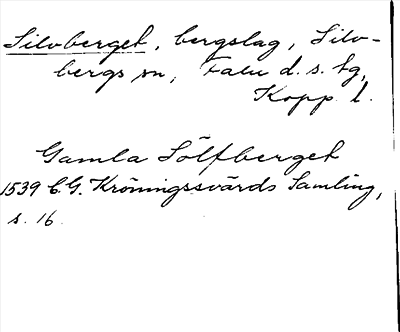 Silvberget, bergslag, Silv-
bergs sn, Falu d. s. tg,
Kopp. l.
Gamla Sölfberget
1539 C.G. Kröningssvärds Samling,
s. 16.